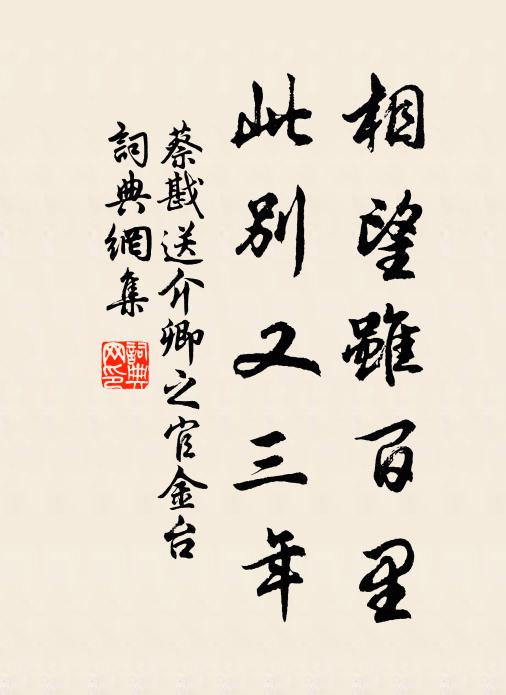 相望雖百里
此別又三年
蔡戡送介卿之官金台
詞典網集
詞典網印